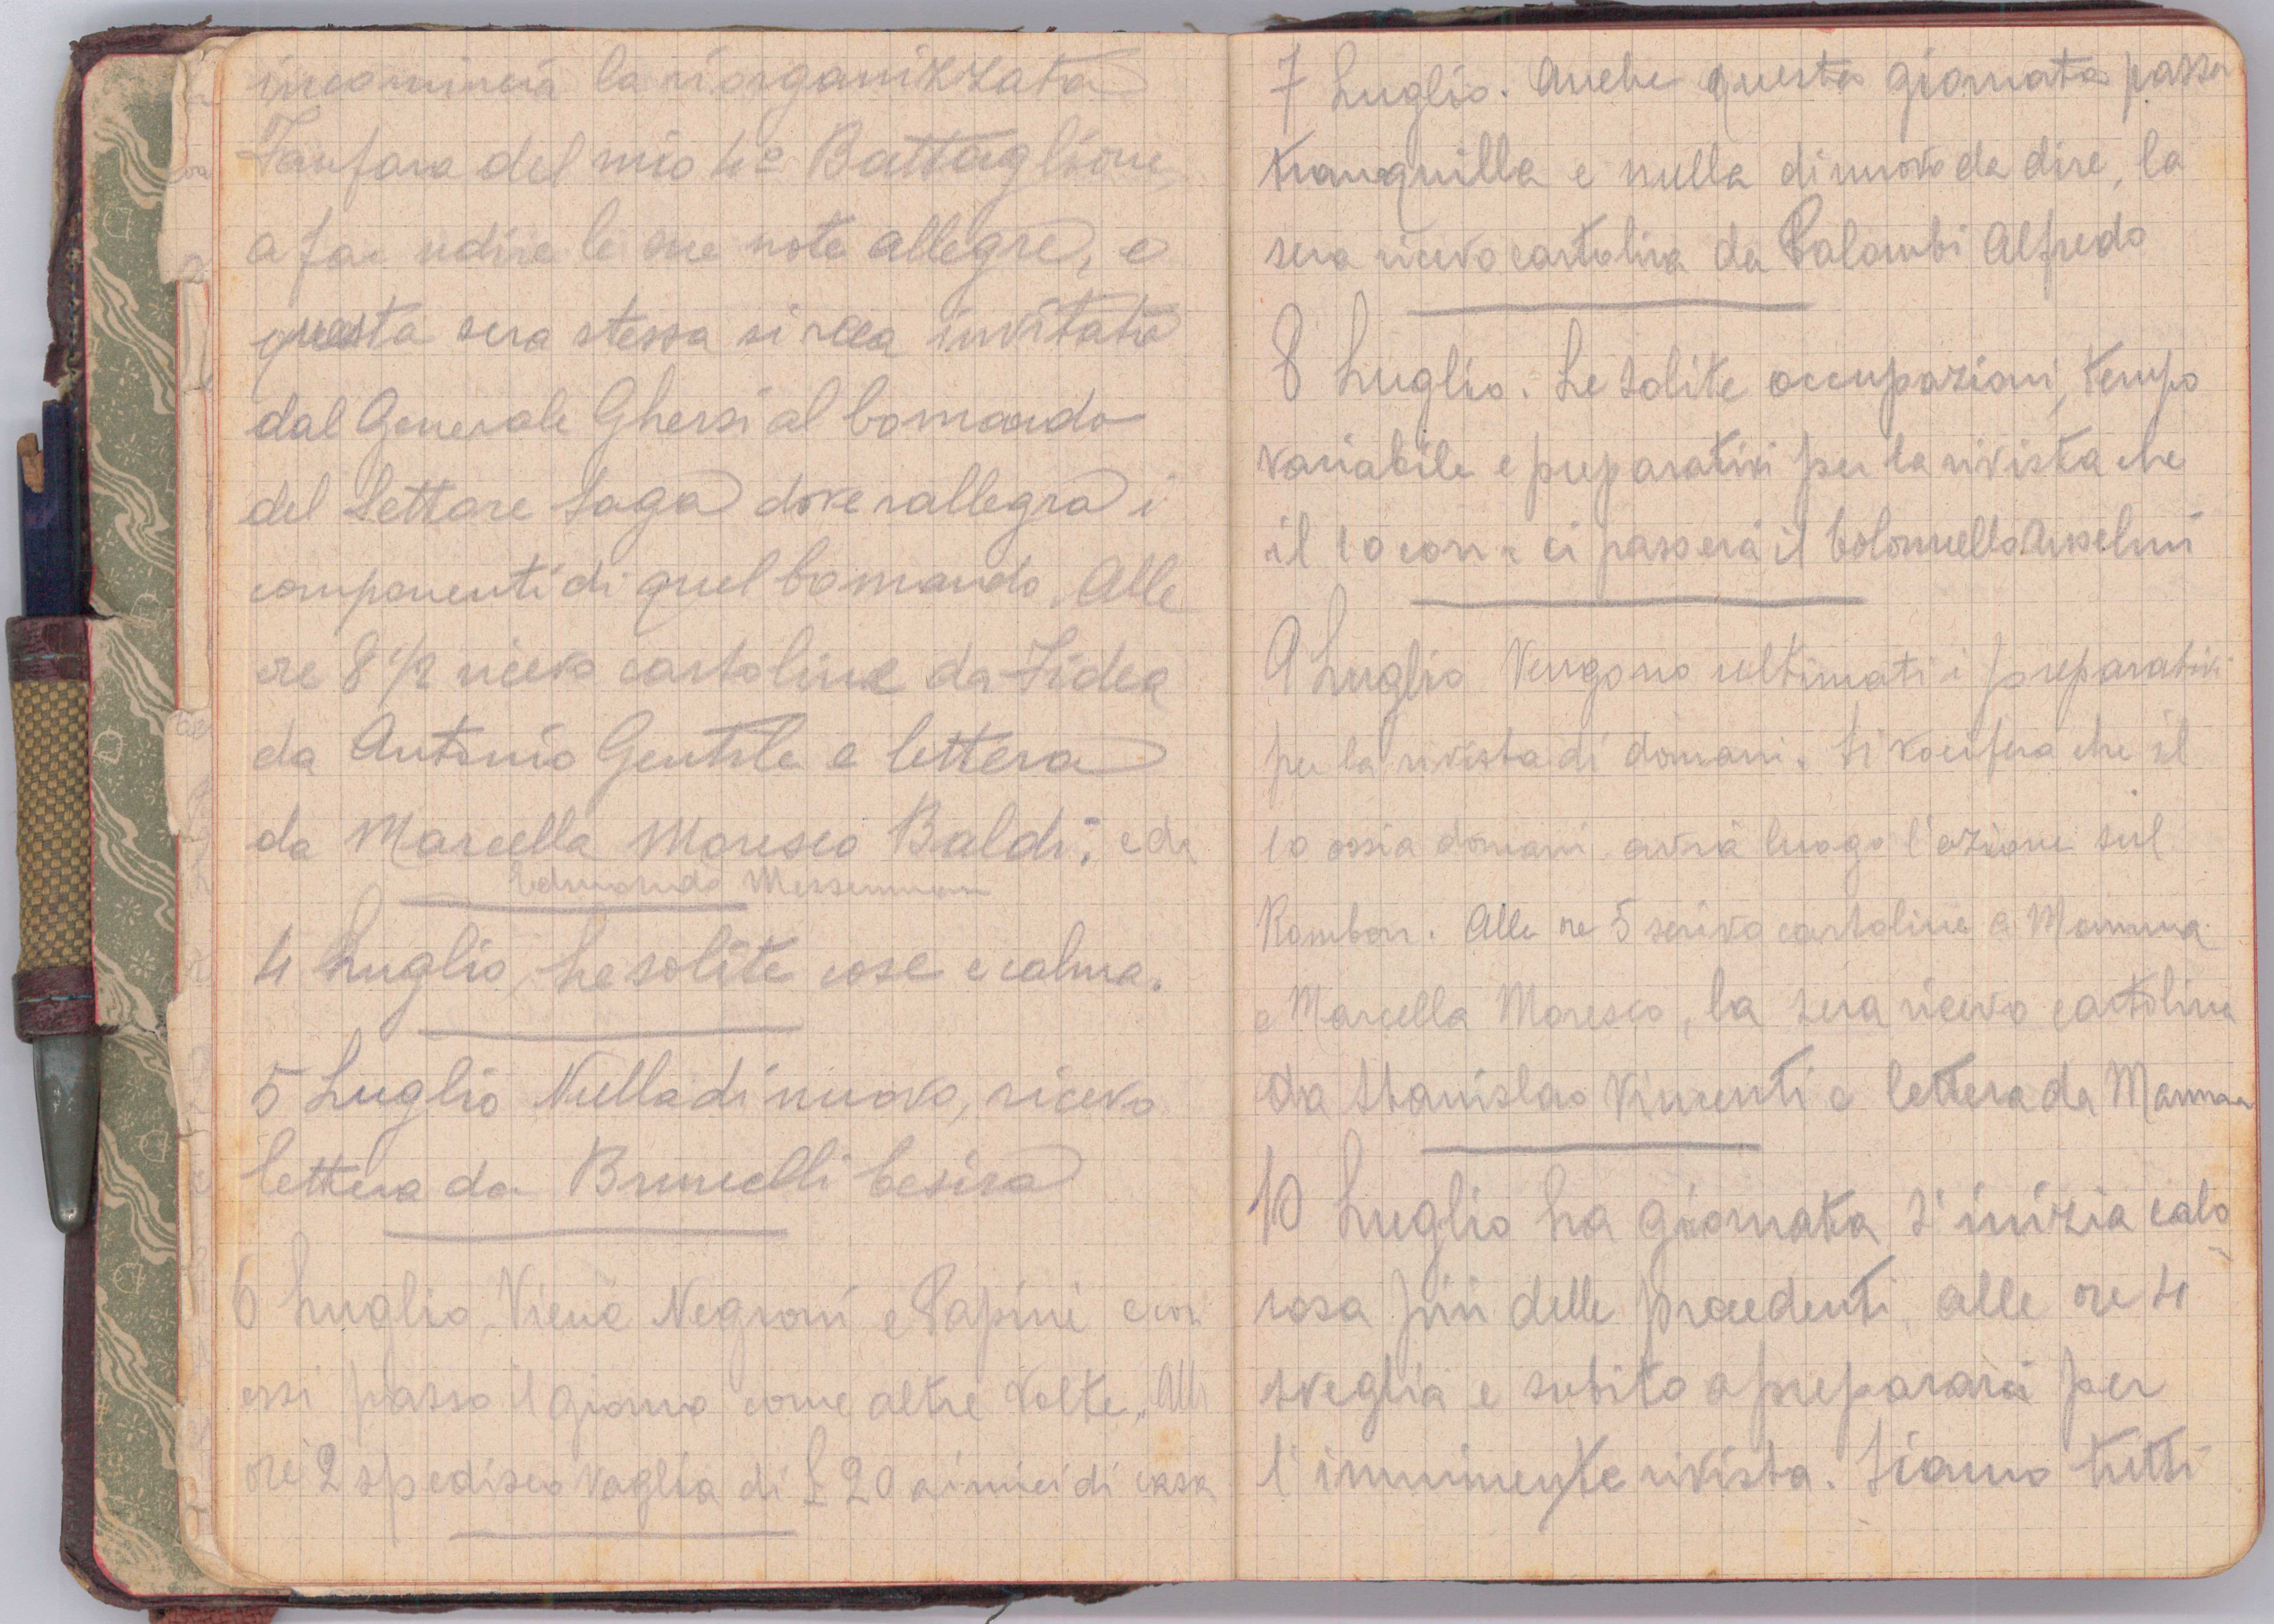 incomincia la riorganizzata
Fanfara del mio 4º Battaglione
a far udire le sue note allegre, e
questa sera stessa si reca invitata
dal Generale Ghersi al Comando
del Settore Saga dove rallegra i
componenti di quel Comando. Alle
ore 8 1/2 ricevo cartoline da Fidea
da Antonio Gentile e lettera
da Marcella Moresco Baldi; e da
Edmondo
4 Luglio, Le solite cose e calma.
5 Luglio Nulla di nuovo, ricevo
lettera da Brunelli Cesira
6 Luglio, Viene Negroni e Papini e con
essi passo il giorno come altre volte, Alle
ore 2 spedisco vaglia di £ 20 ai miei di casa
7 Luglio. Anche questa giornata passa
tranquilla e nulla di nuovo da dire, la
sera ricevo cartolina da Palombi Alfredo
8 Luglio. Le solite occupazioni, tempo
variabile e preparativi per la rivista che
il 10 corr. ci passerà il Colonnello Anselmi
9 Luglio Vengono ultimati i preparativi
per la rivista di domani. Si vocifera che il
10 ossia domani avrà luogo l'azione sul
Rombon. Alle ore 5 scrivo cartoline a Mamma
e Marcella Moresco, la sera ricevo cartolina
da Stanislao Vincenti e lettera da Mamma
10 Luglio La giornata s'inizia calo
rosa più delle precedenti, alle ore 4
sveglia e subito a prepararci per
l'imminente rivista. Siamo tutti